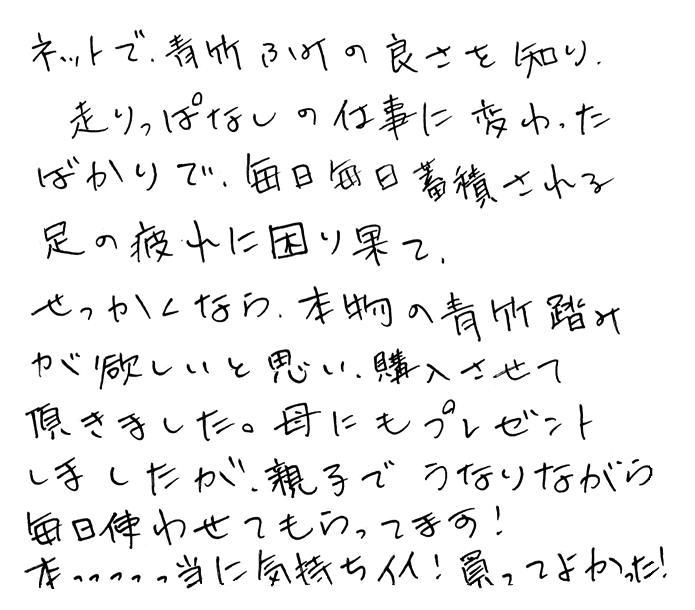 ネットで、青竹ふみの良さを知り、
走りっぱなしの仕事に変わった
ばかりで、毎日毎日蓄積される
足の疲れに困り果て、
せっかくなら、本物の青竹踏み
が欲しいと思い、購入させて
頂きました。母にもプレゼント
しましたが、親子でうなりながら
毎日使わせてもらってます!
本っっっっっ当に気持ちイイ!買ってよかった!